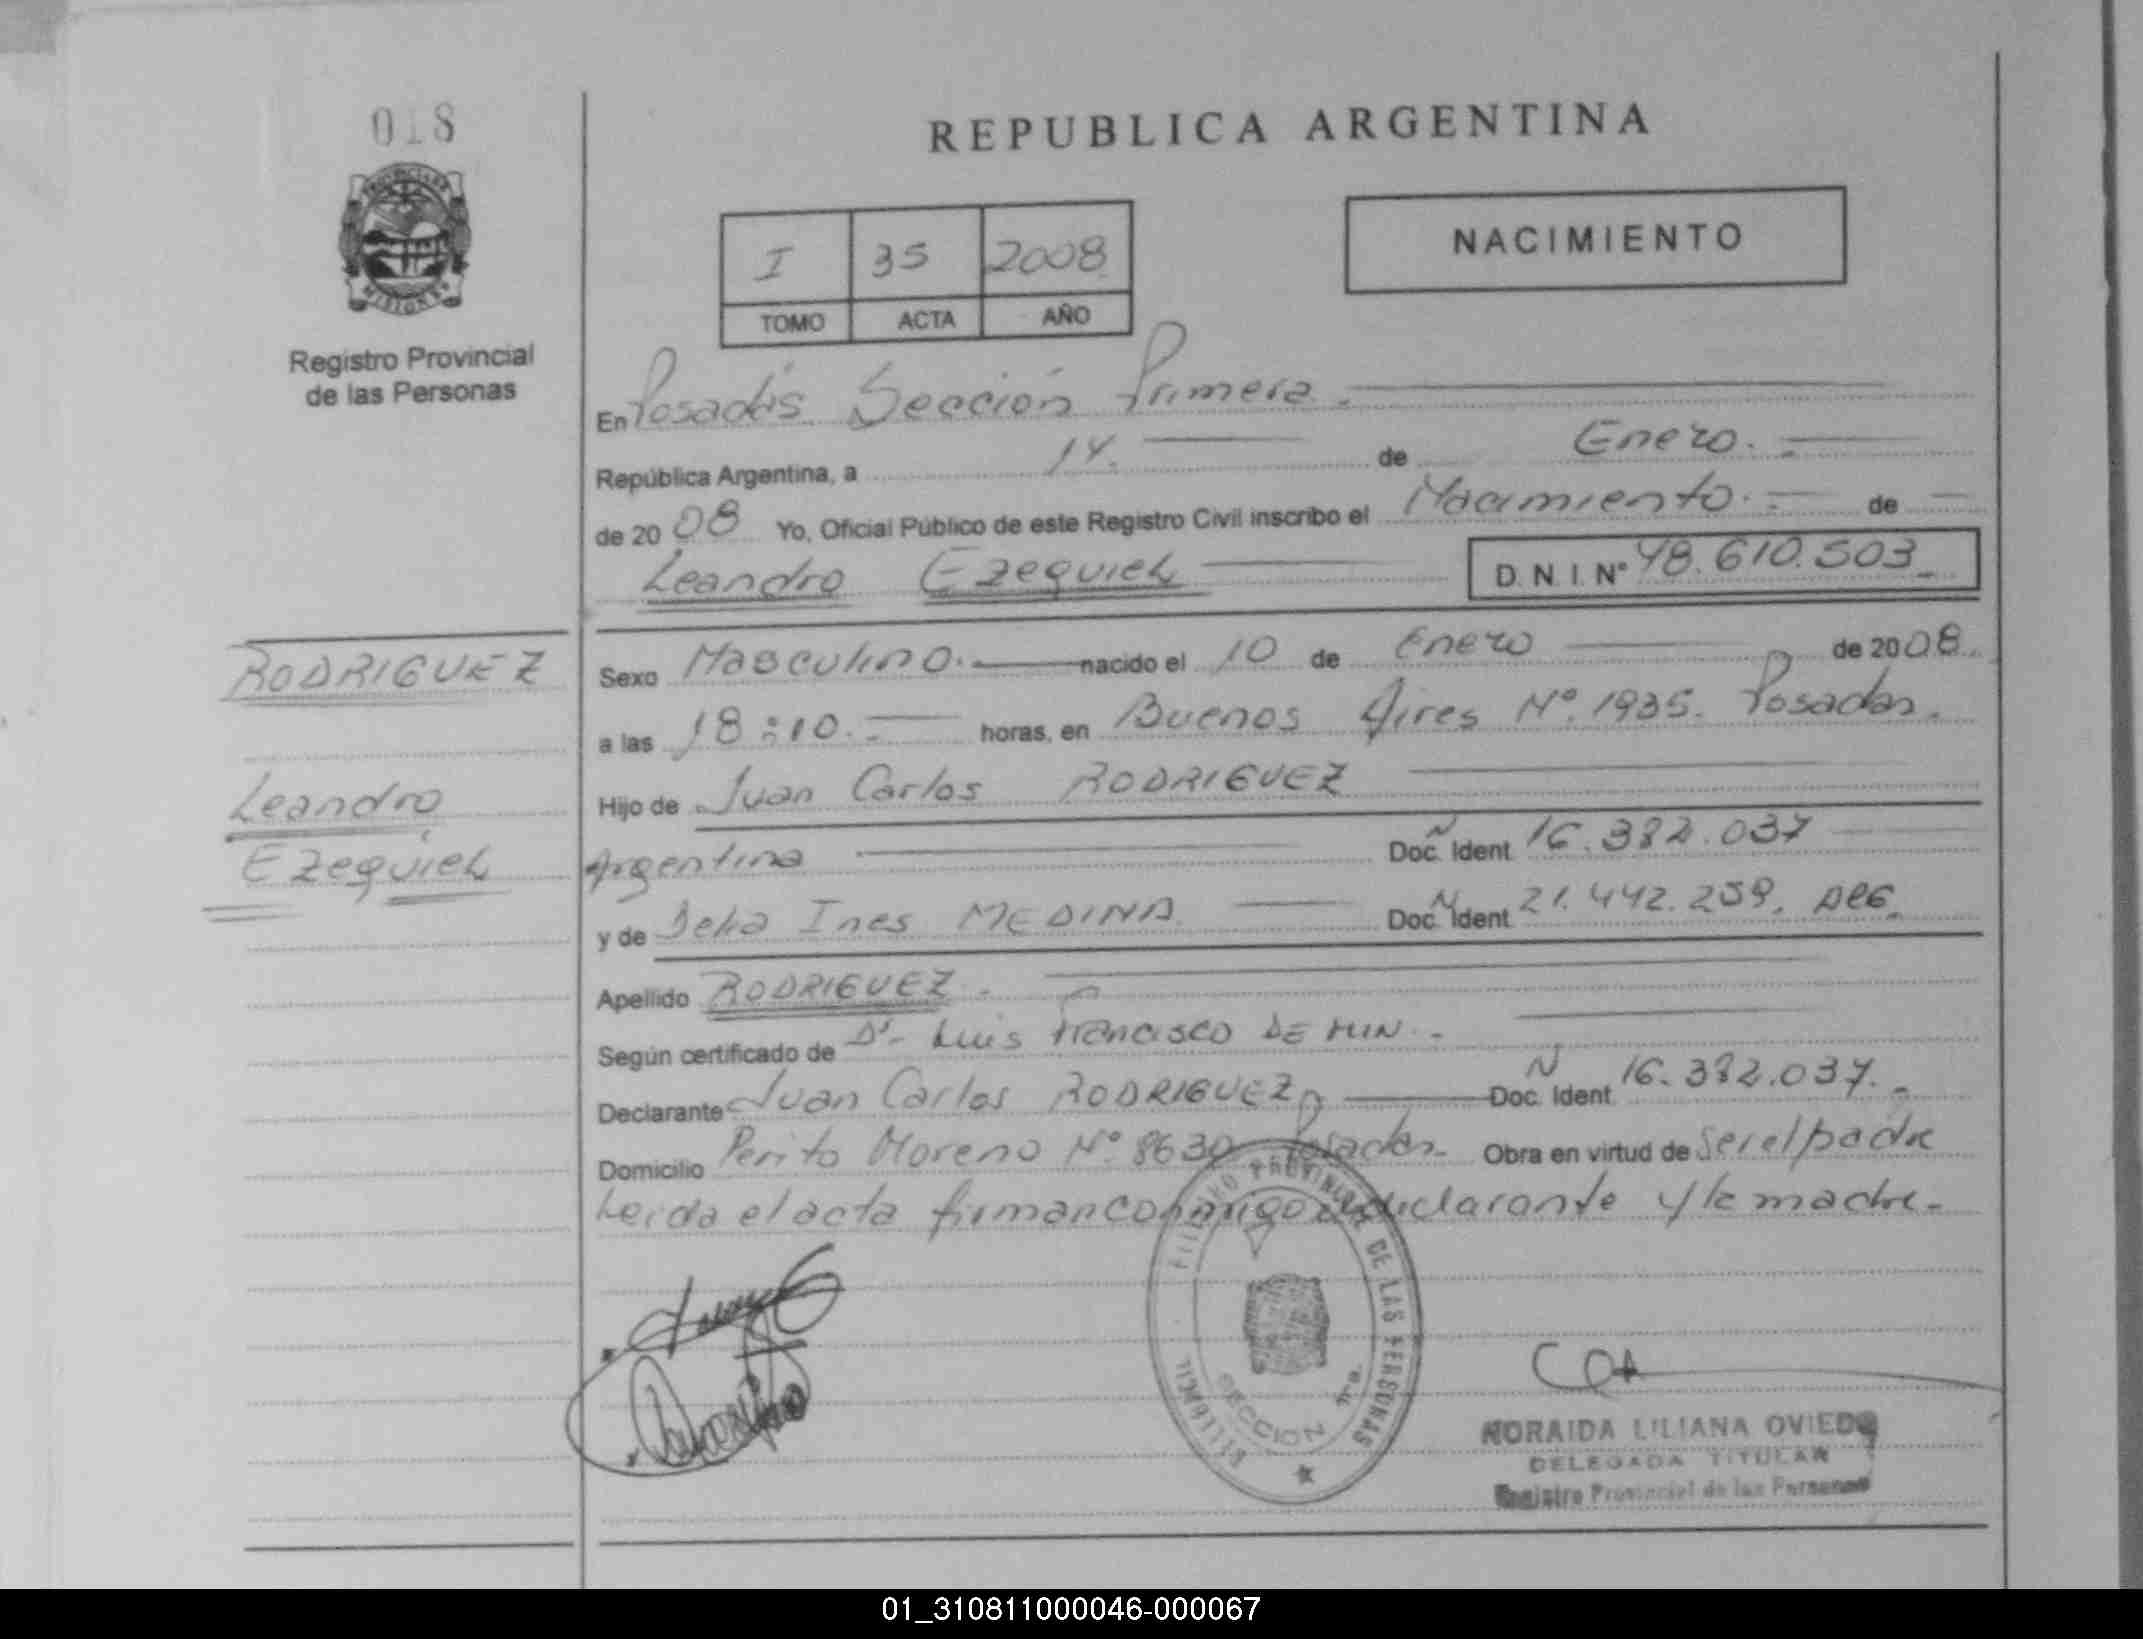 018
REPUBLICA ARGENTINA
PROVINCIA DE
MISIONES
Registro Provincial
de las Personas
I 35 2008
TOMO ACTA AÑO
NACIMIENTO
En Posadas Sección Primera.
República Argentina, a 14. de Enero.
de 2008 Yo, Oficial Público de este Registro Civil inscribo el Nacimiento. de
Leandro Ezequiel D.N.I. Nº 48.610.503
RODRIGUEZ
Leandro
Ezequiel
Sexo Masculino. nacido el 10 de Enero de 2008.
a las 18:10. horas, en Buenos Aires Nº 1935. Posadas.
Hijo de Juan Carlos RODRIGUEZ
Argentina Doc. Ident. N 16.382.037
y de Delia Ines MEDINA Doc. Ident. N 21.442.259. Arg.
Apellido RODRIGUEZ.
Según certificado de Dr. Luis Francisco DE MIN.
Declarante Juan Carlos RODRIGUEZ Doc. Ident. N 16.382.037.
Domicilio Perito Moreno Nº 8630 Posadas. Obra en virtud de Ser el padre
Leida el acta firman conmigo el declarante y la madre.
REGISTRO PROVINCIAL DE LAS PERSONAS
SECCION 1ra.
NORAIDA LILIANA OVIEDO
DELEGADA TITULAR
Registro Provincial de las Personas
01_310811000046-000067